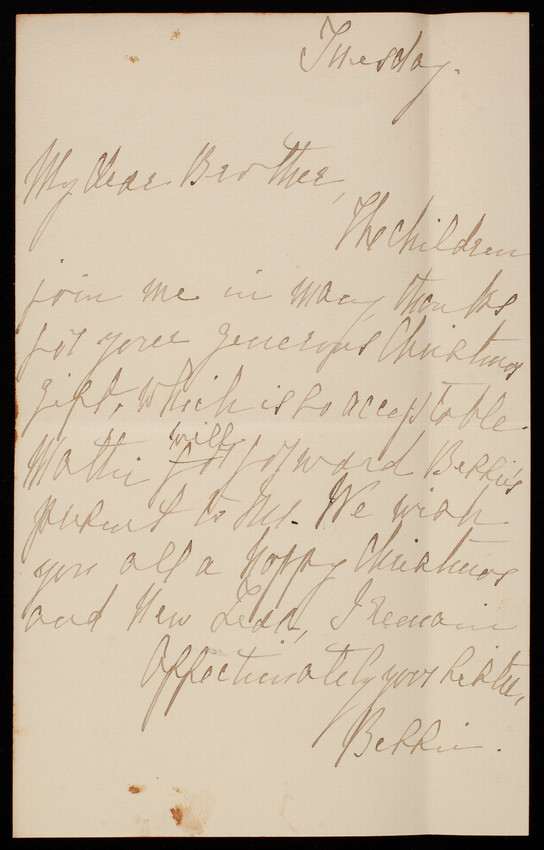 Tuesday.
My dear Brother,
The children
join me in many thanks
for your generous Christmas
gift, which is so acceptable.
Mattie will for forward Bessie's
present to her. We wish
you all a happy Christmas
and New Year, I remain
Affectionately your sister,
Bessie.